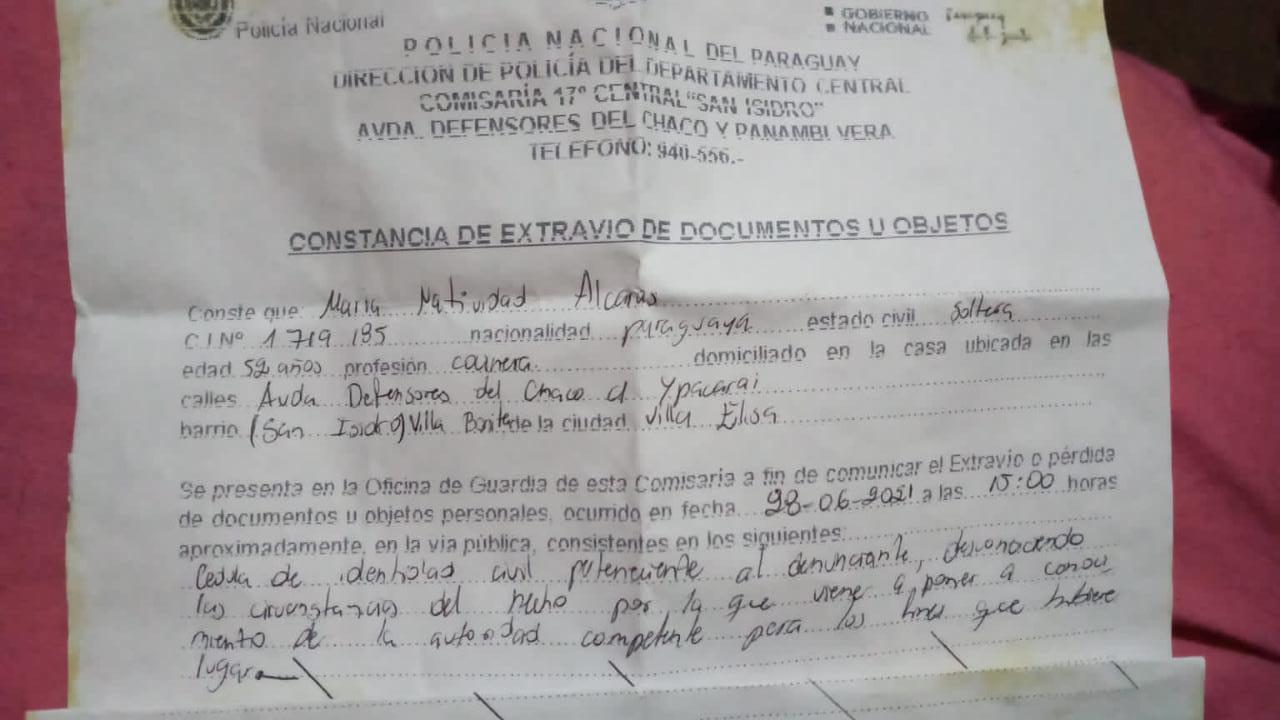 Policía Nacional
GOBIERNO
NACIONAL
POLICIA NACIONAL DEL PARAGUAY
DIRECCION DE POLICÍA DEL DEPARTAMENTO CENTRAL
COMISARÍA 17º CENTRAL "SAN ISIDRO"
AVDA. DEFENSORES DEL CHACO Y PANAMBI VERA
TELEFONO: 940-556.-
CONSTANCIA DE EXTRAVIO DE DOCUMENTOS U OBJETOS
Conste que: Maria Natividad Alcaras
C I Nº 1 719 185 nacionalidad paraguaya estado civil Soltera
edad 52 años profesión domiciliado en la casa ubicada en las
calles Avda Defensores del Chaco c/ Ypacarai
barrio (San Isidro) Villa Bonita de la ciudad Villa Elisa
Se presenta en la Oficina de Guardia de esta Comisaria a fin de comunicar el Extravio o pérdida
de documentos u objetos personales, ocurrido en fecha 28-06-2021 a las 15:00 horas
aproximadamente, en la via pública, consistentes en los siguientes:
Cedula de identidad civil perteneciente al denunciante, desconociendo
las circunstancias del hecho por la que viene a poner a conoci
miento de la autoridad competente para los fines que hubiere
lugar